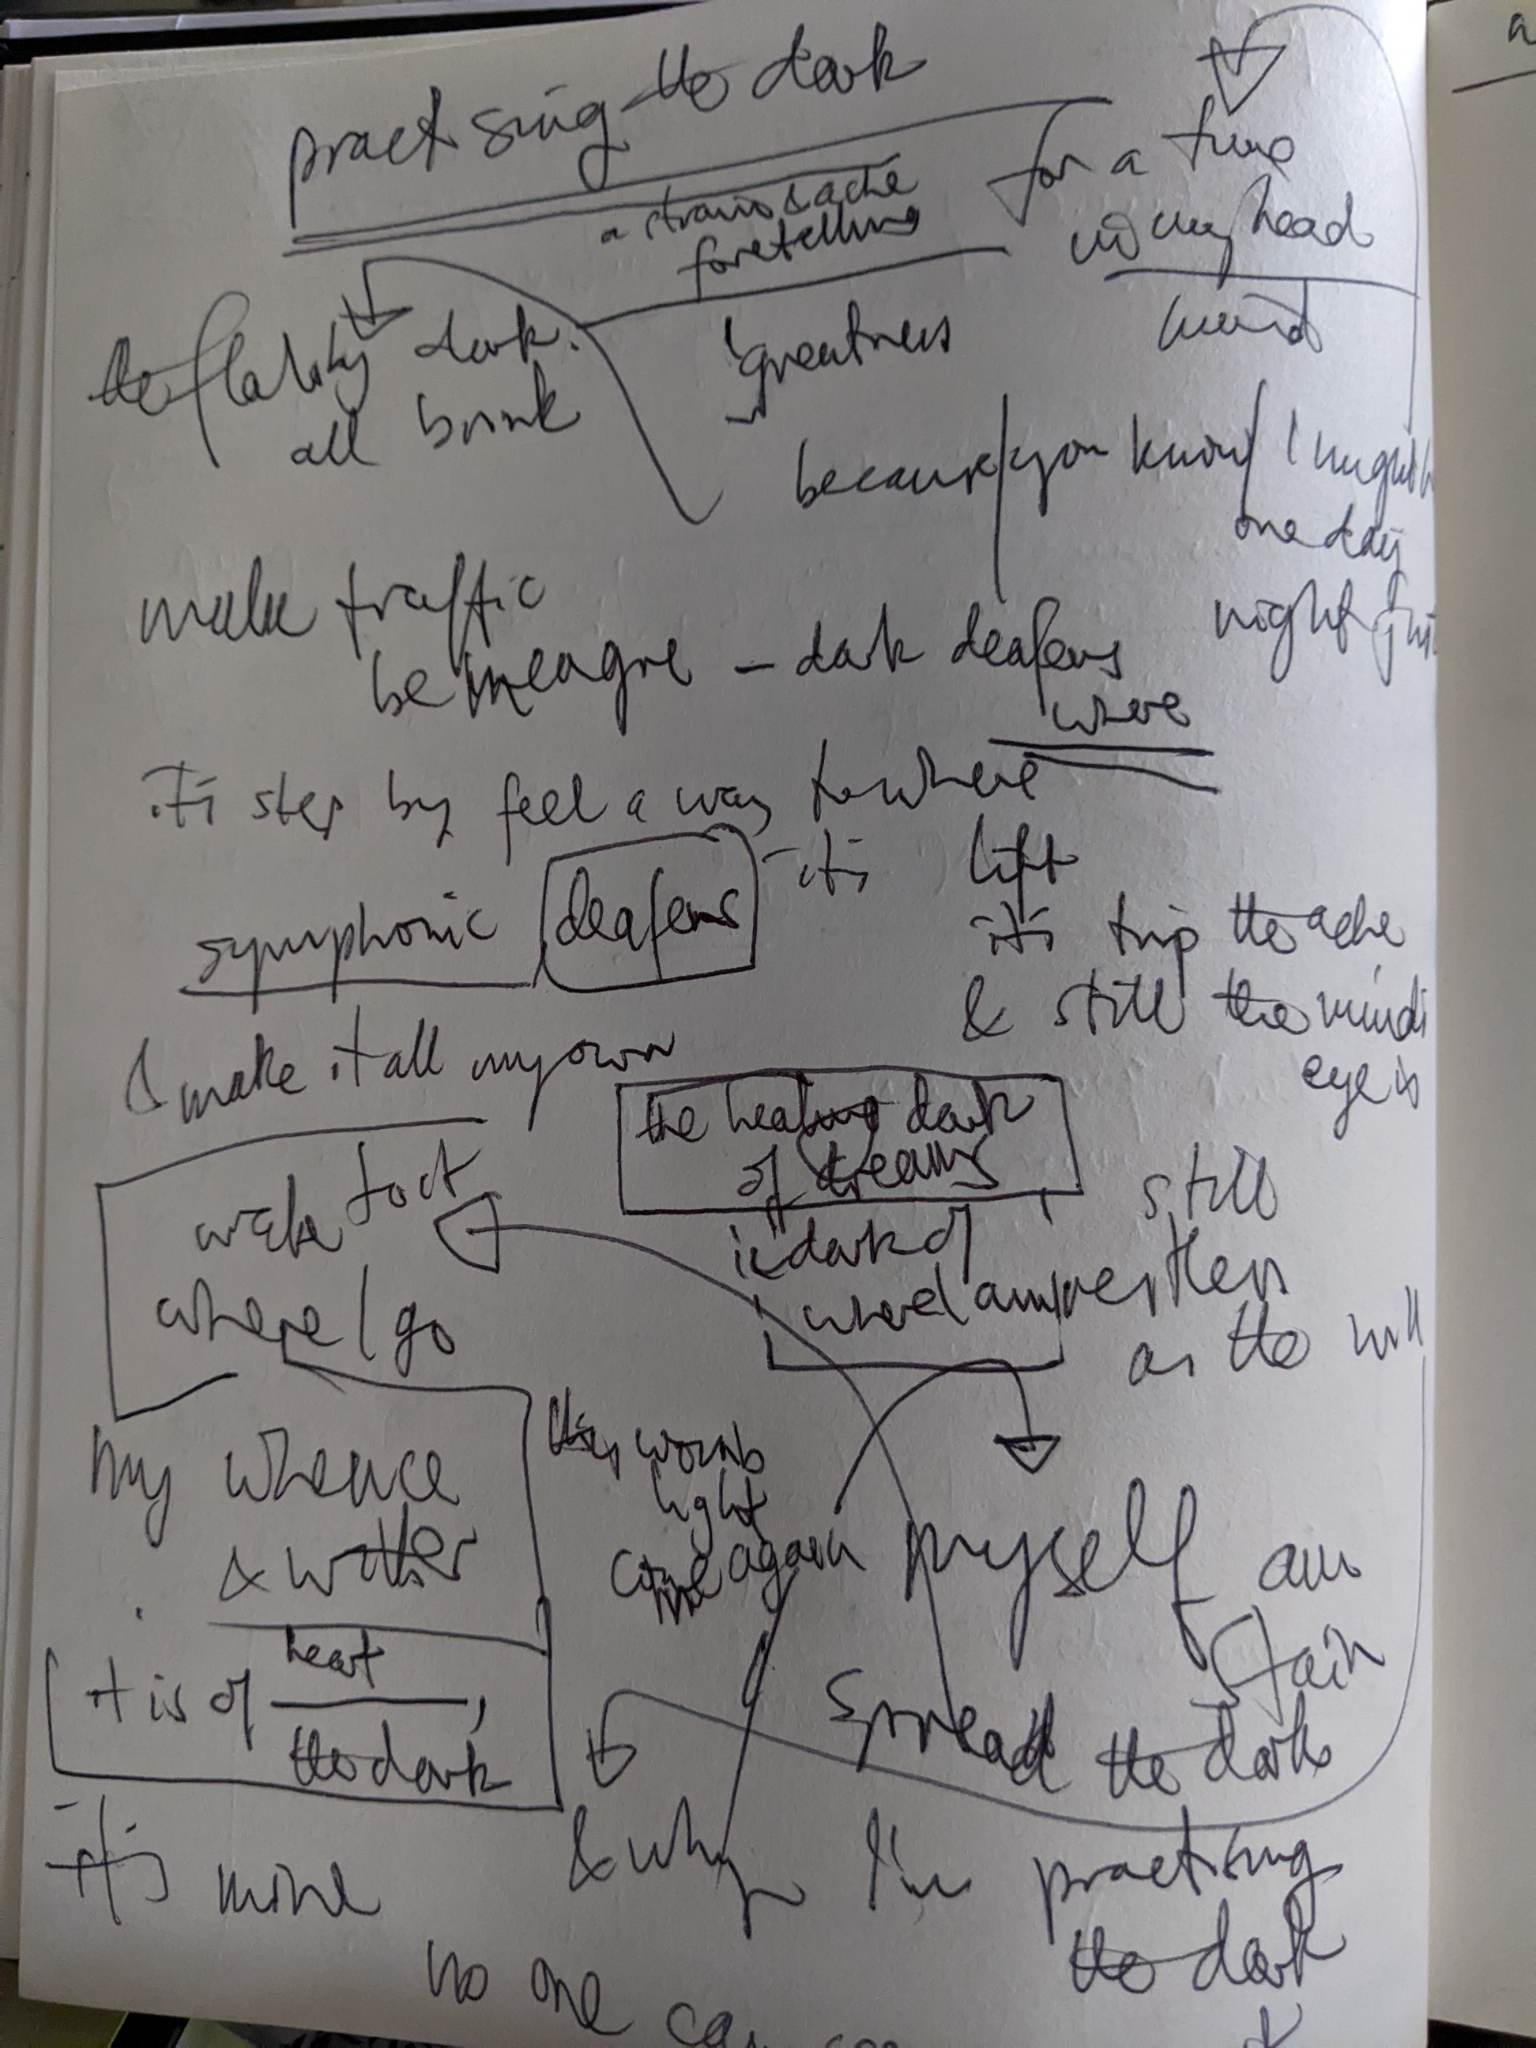 practising the dark
a strain & ache
foretelling
for a time
in my head
the dark.
all brink
greatness
because you know I might
one day
night
make traffic
be meagre — dark deafens
where
it's step by feel a way to where
symphonic deafens it's lift
it's trip the ache
& still the mind's
eye is
& make it all my own
the healing dark
of dreams
is dark of
where I am restless
still
as the will
make foot
where I go
my whence
& wither
this womb
light
come again
myself am
stain
spread the dark
it is of heat,
the dark
it's mine
& why I'm practising
the dark
no one can see